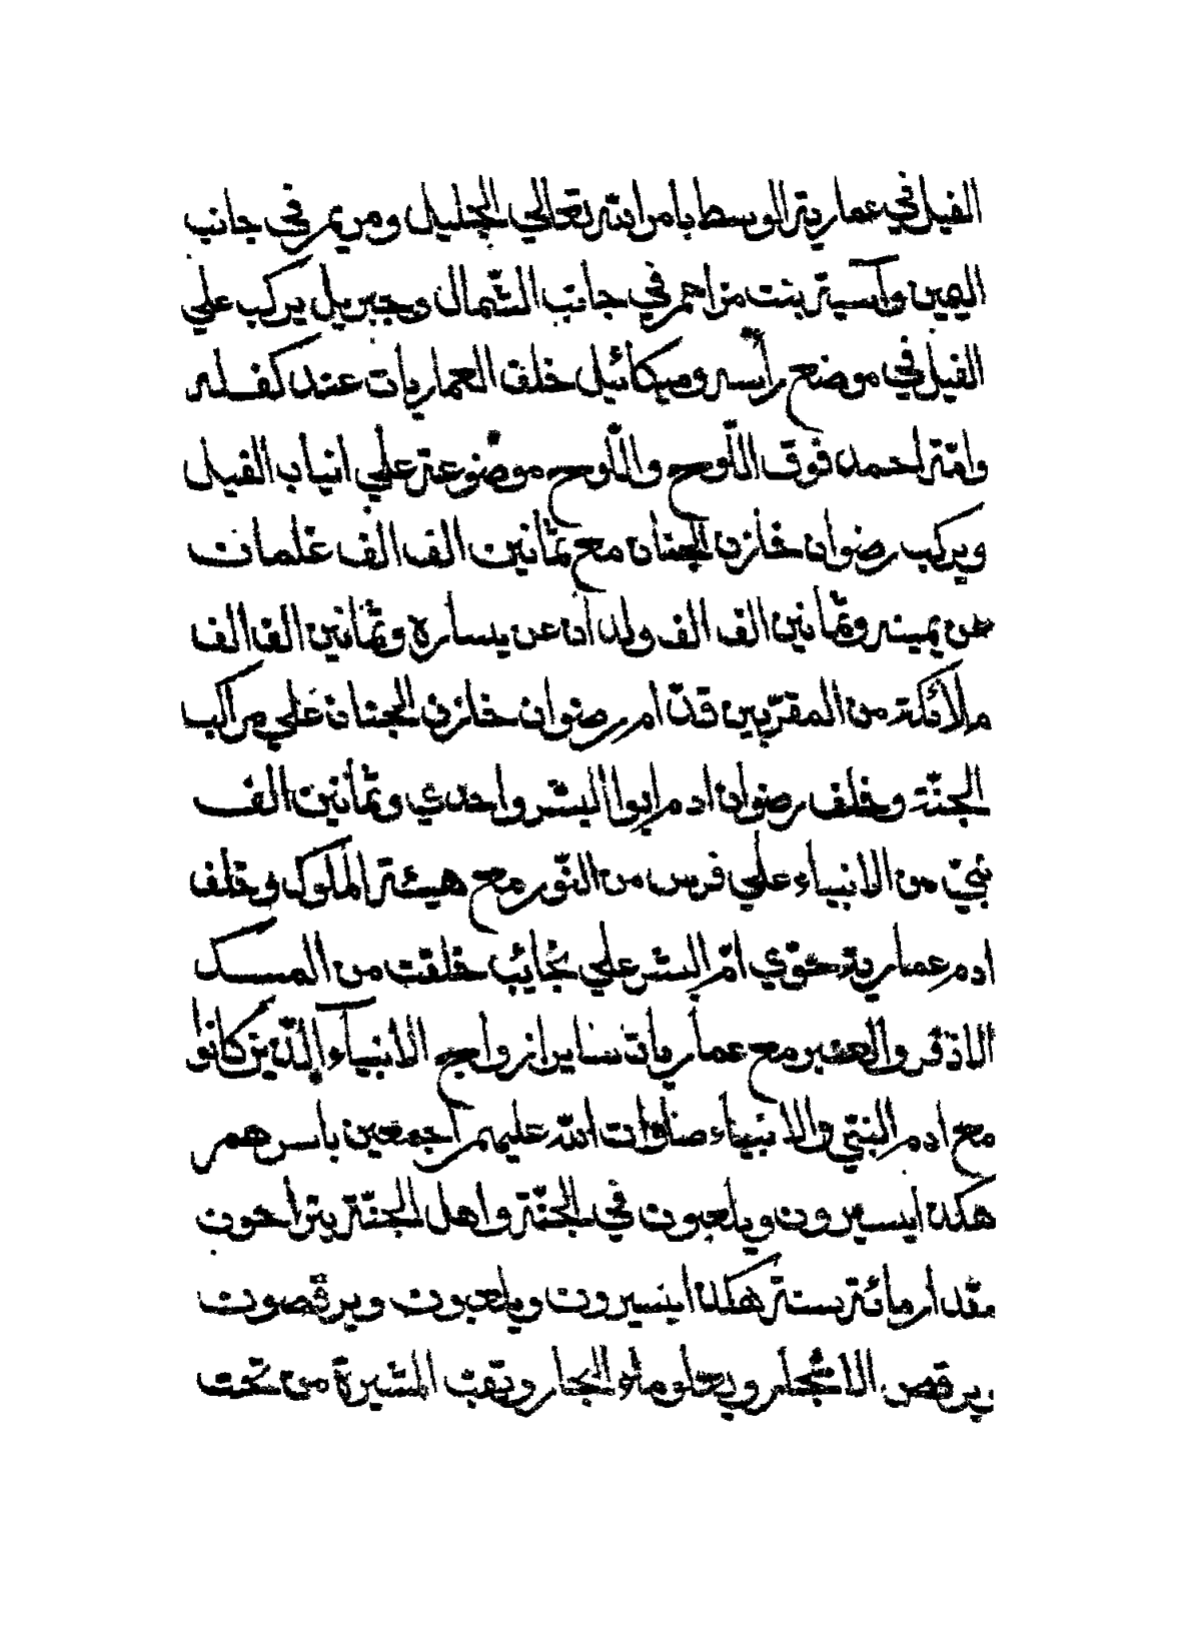 الفيل في عمارية الوسط بامر الله تعالي الجليل ومريم في جانب
اليمين وآسية بنت مزاحم في جانب الشّمال وجبريل يركب علي
الفيل في موضع رأسه وميكائيل خلف العماريات عند كفله
وامّة احمد فوق اللّوح واللّوح موضوعة علي انياب الفيل
ويركب رضوان خازن الجنان مع ثمّانين الف الف غلمان
عن يمينه وثمّانين الف الف ولدان عن يساره وثمّانين الف الف
ملائكة من المقرّبين قدّام رضوان خازن الجنان علي مراكب
الجنّة وخلف رضوان ادم ابوا البشر واحدي وثمّانين الف
نبيّ من الانبياء علي فرس من النّور مع هيئة الملوك وخلف
ادم عمارية حوّي امّ البشر علي نجائب خلقت من المسك
الاذفر والعنبر مع عماريات ساير ازواج الانبيآء الّذين كانوا
مع ادم النبيّ والانبياء صلوات الله عليهم اجمعين باسرهم
هكذا يسيرون ويلعبون في الجنّة واهل الجنّة يتراحون
مقدار مائة سنة هكذا يسيرون ويلعبون ويرقصون
يرقص الاشجار ويحلو ماء البحار ويقف المشيرة من تحت